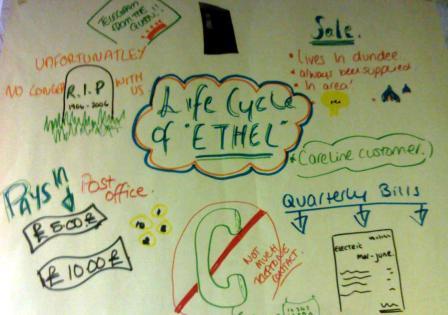 TELEGRAM
FROM THE
QUEEN!!
UNFORTUNATLEY
NO LONGER
WITH
US.
R.I.P
1906-2006
Life Cycle
of "ETHEL"
Sale.
• Lives In dundee.
• always been supplied
In area!
* Careline customer.
Pays In
Post
office.
£500£
£1000£
C
NOT
MUCH
CONTACT
Quarterly Bills
ELECTRIC
Mar-June.